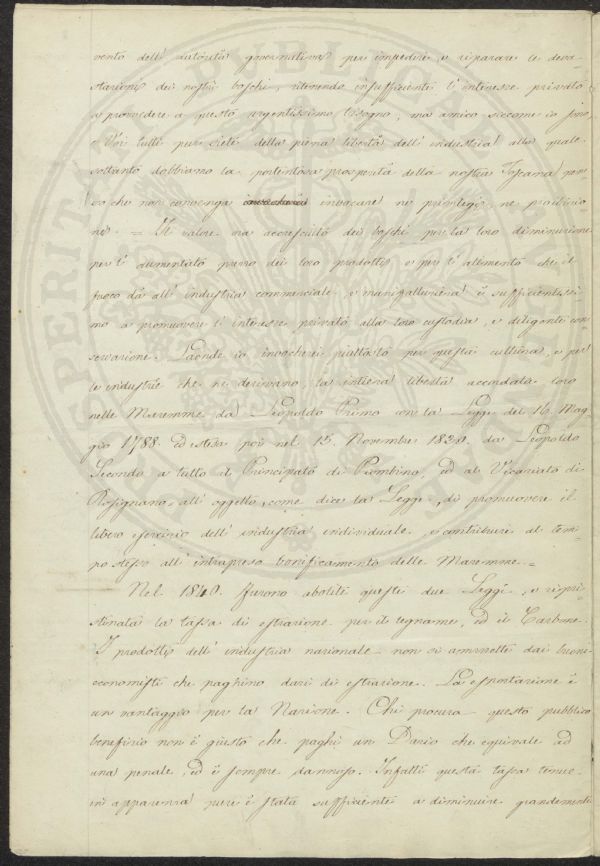 vento dell' autorità governativa per impedire, e riparare le deva-
stazioni dei nostri boschi, ritenendo insufficiente l'interesse privato
a provvedere a questo urgentissimo bisogno; ma amico siccome io sono,
e Voi tutti pur siete della piena libertà dell' industria alla quale
soltanto dobbiamo la portentosa prosperità della nostra Toscana, pen-
so che non convenga invocare ne privilegj, ne proibizio-
ni. = Il valore ora accresciuto dei boschi per la loro diminuzione
per l' aumentato prezzo dei loro prodotti, e per l' alimento che il
fuoco dà all' industria commerciale, e manifatturiera è sufficientissi-
mo a promuovere l' interesse privato alla loro custodia, e diligente con-
servazione. Laonde io invocherei piuttosto per questa cultura, e per
le industrie che ne derivano, la intiera libertà accordata loro
nelle Maremme da Leopoldo Primo con la Legge del 16 Mag-
gio 1788. ed estesa poi nel 15. Novembre 1830. da Leopoldo
Secondo a tutto il Principato di Piombino, ed al Vicariato di
Rosignano, all' oggetto, come dice la Legge, di promuovere il
libero esercizio dell' industria individuale, e contribuire al tem-
po stesso all' intrapreso bonificamento delle Maremme. =
Nel 1840. furono abolite queste due Leggi, e ripri-
stinata la tassa di estrazione per il legname, ed il Carbone.
I prodotti dell' industria nazionale non si ammette dai buoni
economisti che paghino dazi di estrazione. La esportazione è
un vantaggio per la Nazione. Chi procura questo pubblico
benefizio non è giusto che paghi un Dazio che equivale ad
una penale, ed è sempre dannoso. Infatti questa tassa tenue
in apparenza pure è stata sufficiente a diminuire grandemente
PVBLICA
PROSPERITA